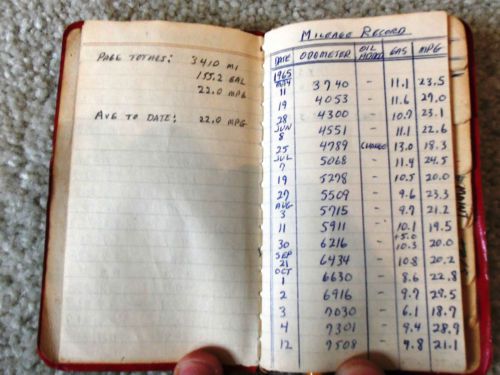 PAGE TOTALS: 3410 MI
155.2 GAL
22.0 MPG
AVG TO DATE: 22.0 MPG
MILEAGE RECORD
DATE ODOMETER OIL ADDED GAS MPG
1965
MAY 11 3740 - 11.1 23.5
19 4053 - 11.6 27.0
28 4300 - 10.7 23.1
JUN 8 4551 - 11.1 22.6
25 4789 CHANGE 13.0 18.3
JUL 7 5068 - 11.4 24.5
19 5278 - 10.5 20.0
27 5509 - 9.6 23.3
AUG 3 5715 - 9.7 21.2
11 5911 - 10.1 19.5
+5.0
30 6216 - 10.3 20.0
SEP 21 6434 - 10.8 20.2
OCT 1 6630 - 8.6 22.8
2 6916 - 9.7 29.5
3 7030 - 6.1 18.7
4 7301 - 9.4 28.9
12 7508 - 9.8 21.1